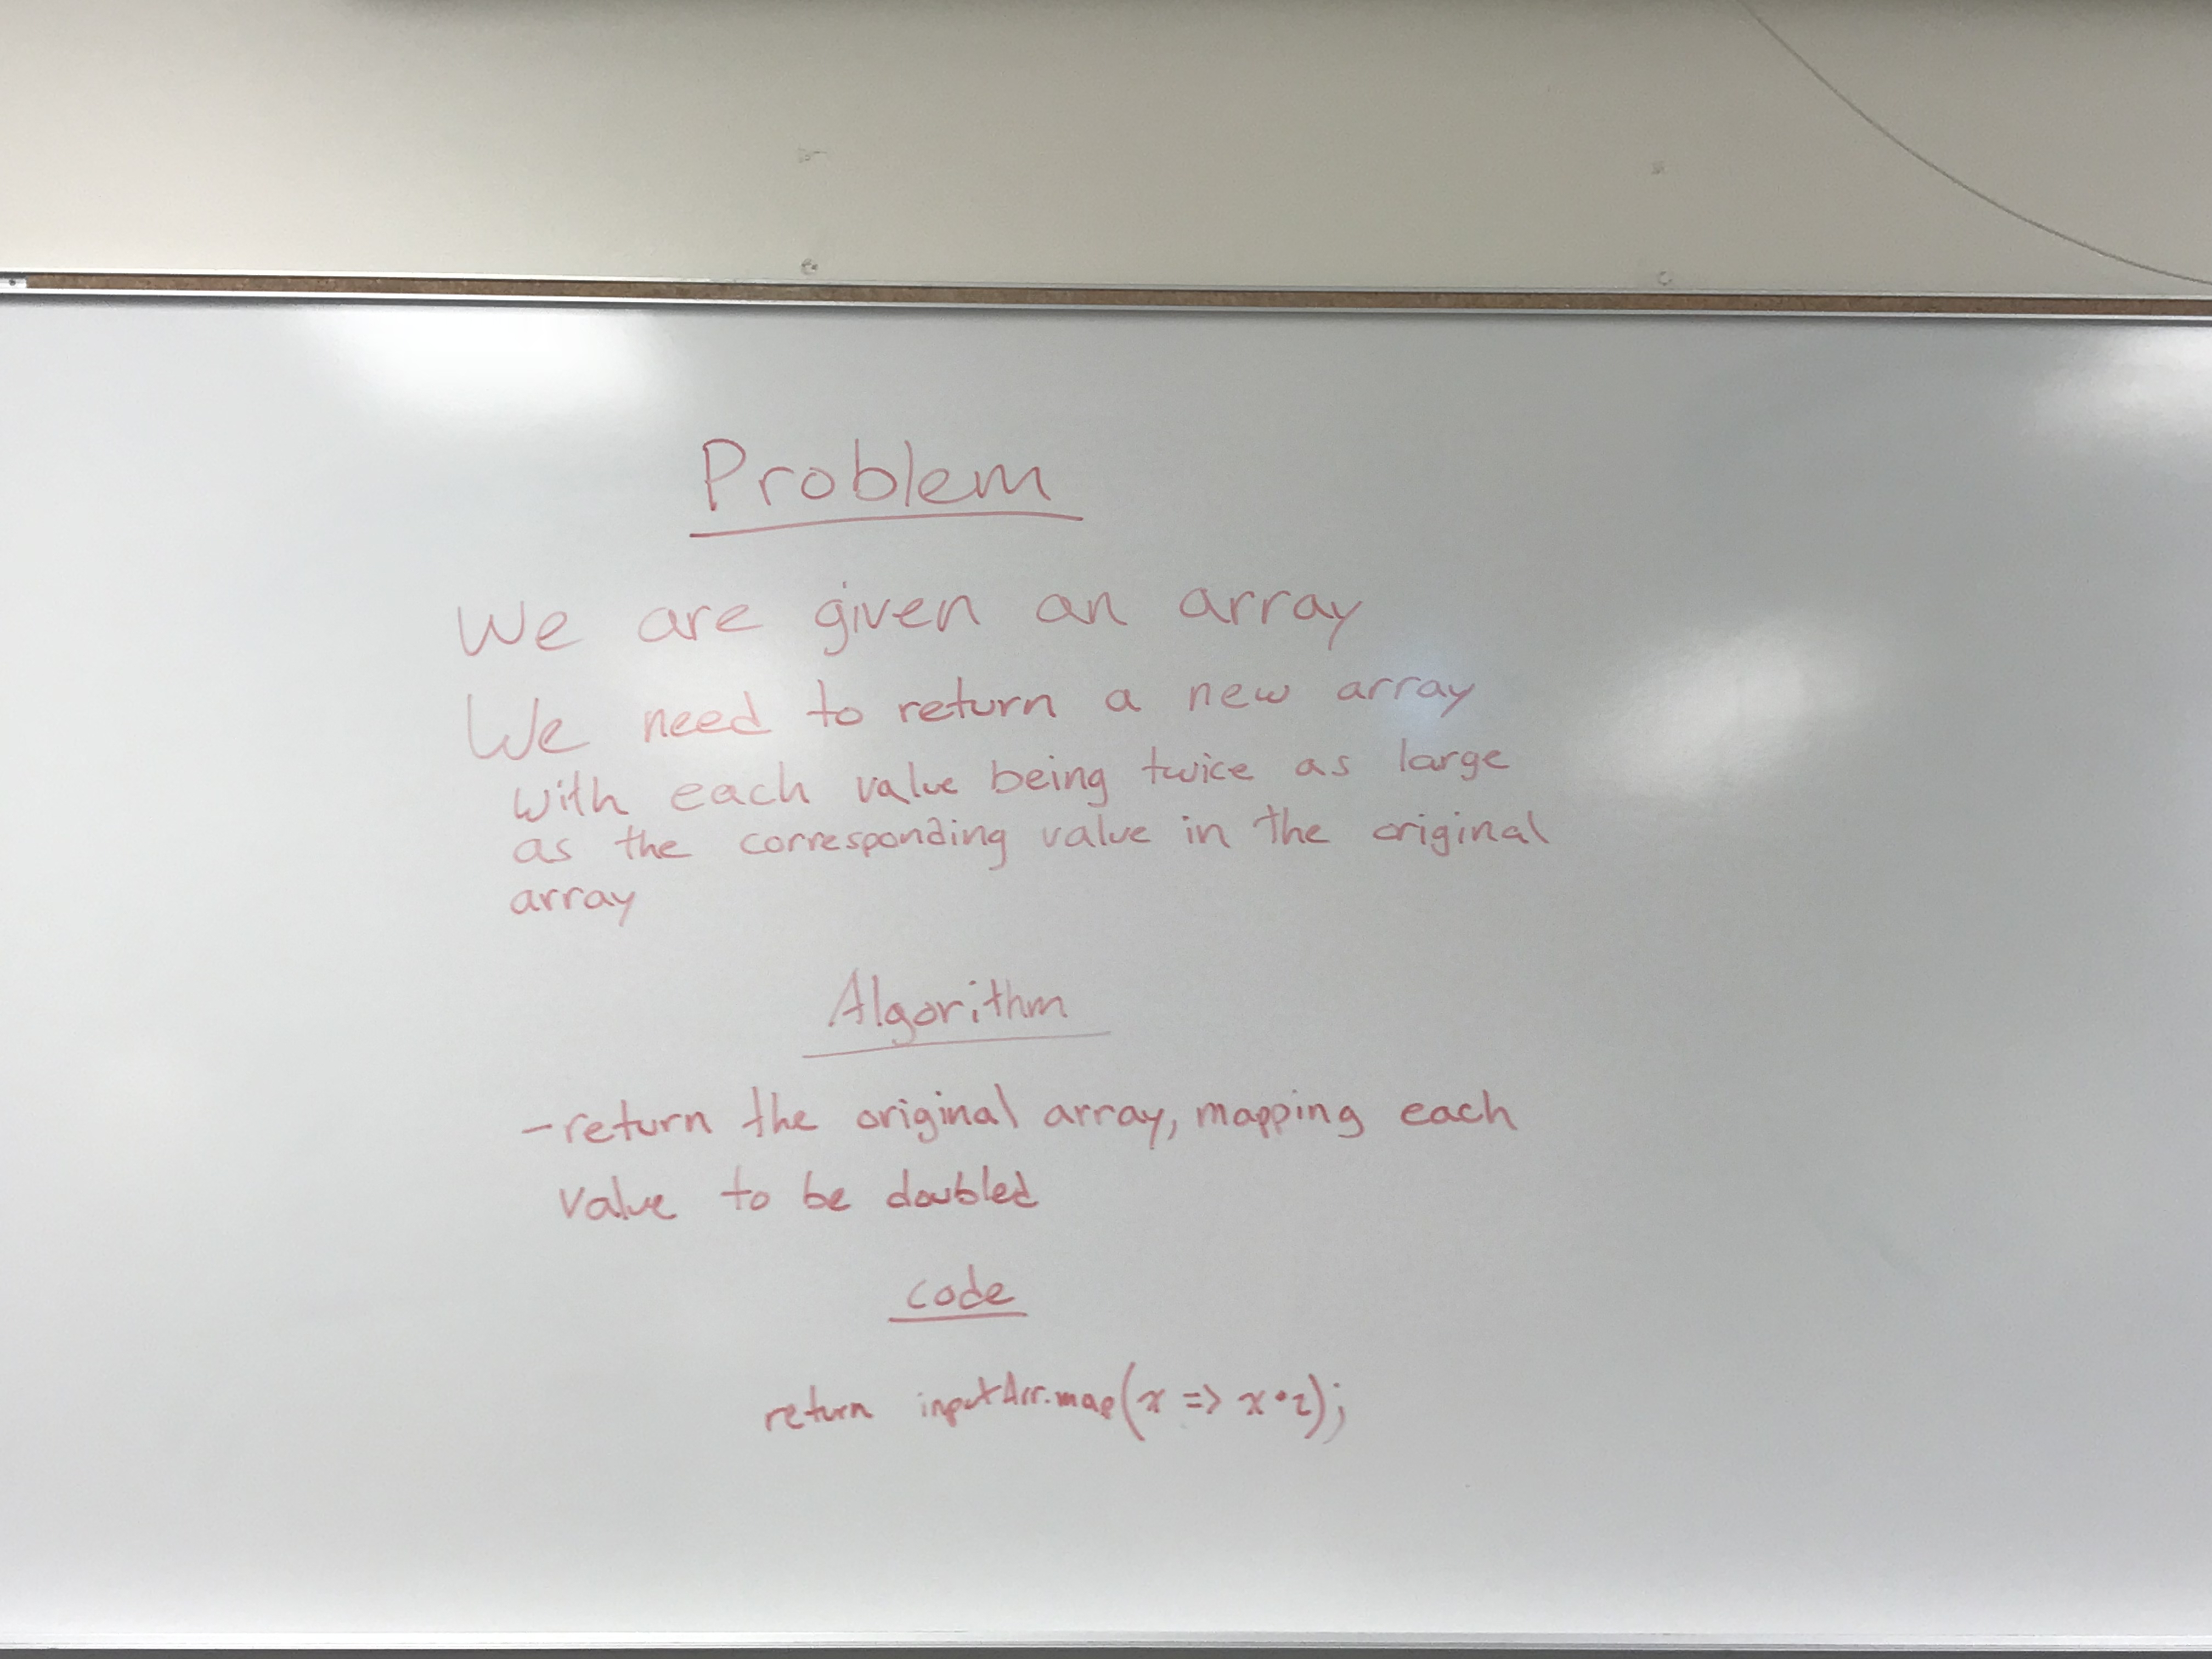 Problem
We are given an array
We need to return a new array
with each value being twice as large
as the corresponding value in the original
array
Algorithm
- return the original array, mapping each
value to be doubled
code
return inputArr.map(x => x•2);